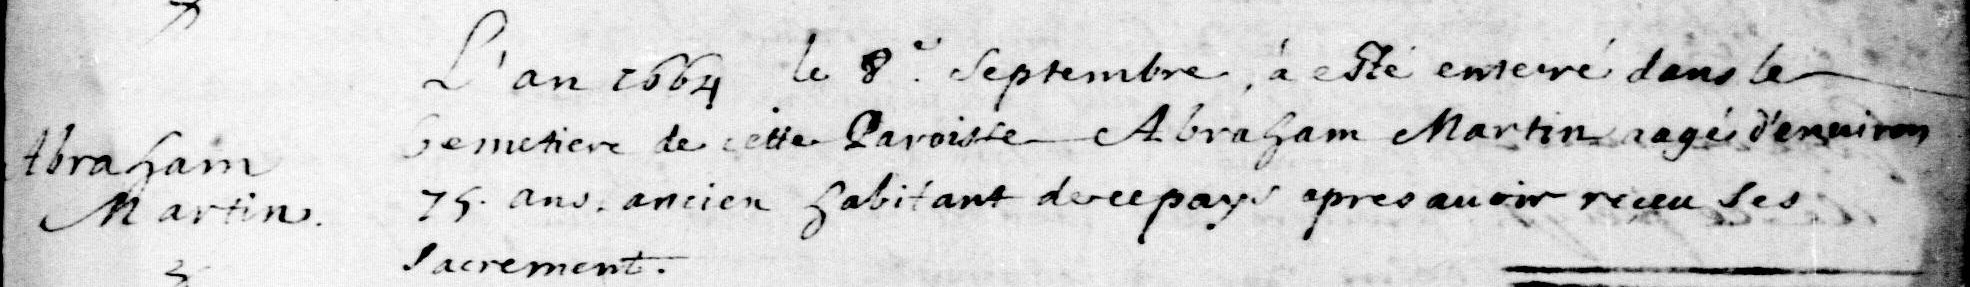 L'an 1664 le 8.e Septembre, à esté enterré dans le
Cemetiere de cette Paroisse Abraham Martin aagé d'environ
Abraham
75. ans. ancien habitant de ce pays apres avoir reçeu ses
Martin.
Sacrement.